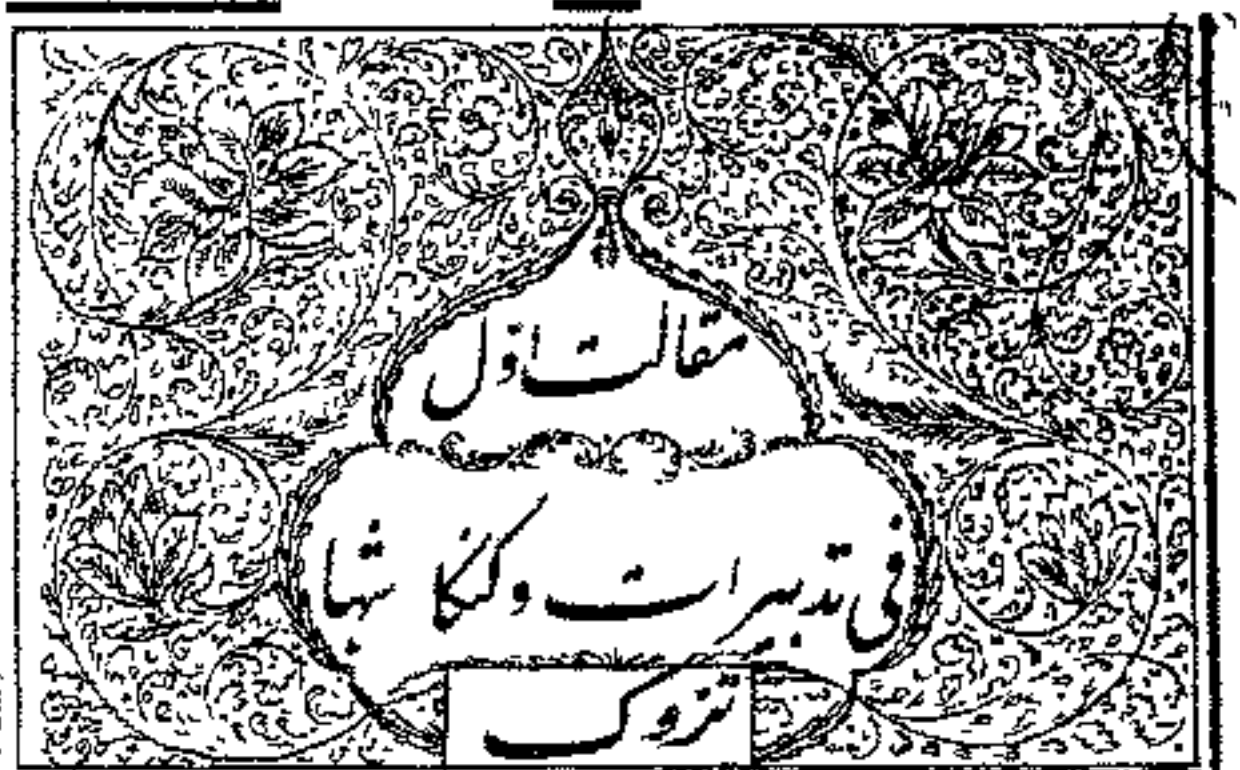 مقالت اول
فی تدبیرات و کنکاشها
تزوک